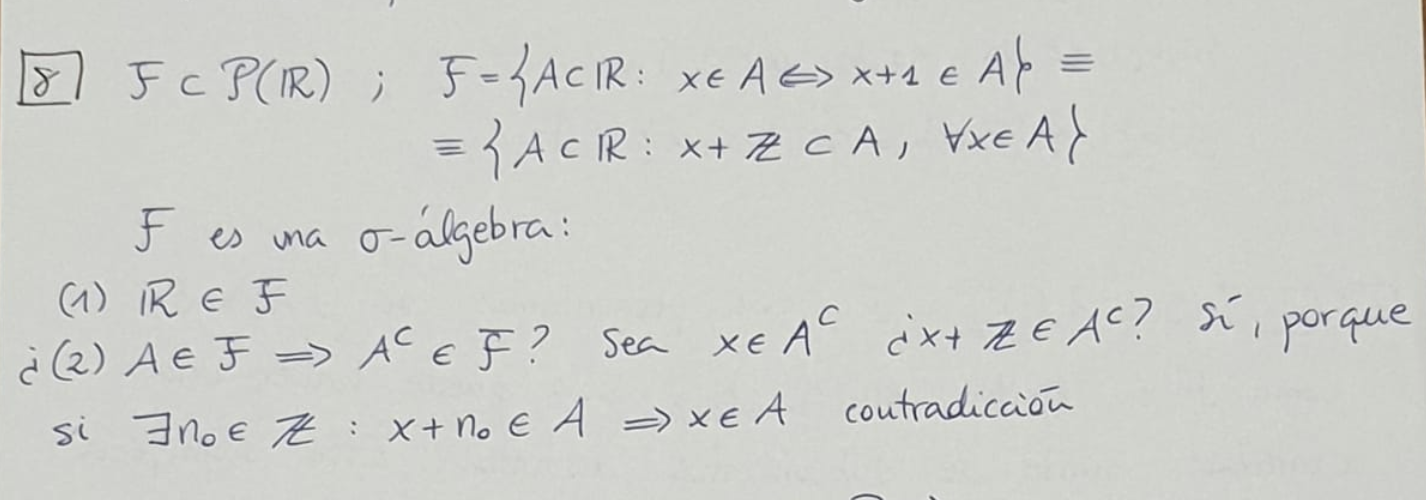 8 F ⊂ P(ℝ) ; F = {A ⊂ ℝ : x ∈ A ⟺ x+1 ∈ A} ≡
≡ {A ⊂ ℝ : x + ℤ ⊂ A, ∀x ∈ A}
F es una σ-álgebra:
(1) ℝ ∈ F
¿(2) A ∈ F ⟹ Aᶜ ∈ F? Sea x ∈ Aᶜ ¿x + ℤ ∈ Aᶜ? Sí, porque
si ∃n₀ ∈ ℤ : x + n₀ ∈ A ⟹ x ∈ A contradicción